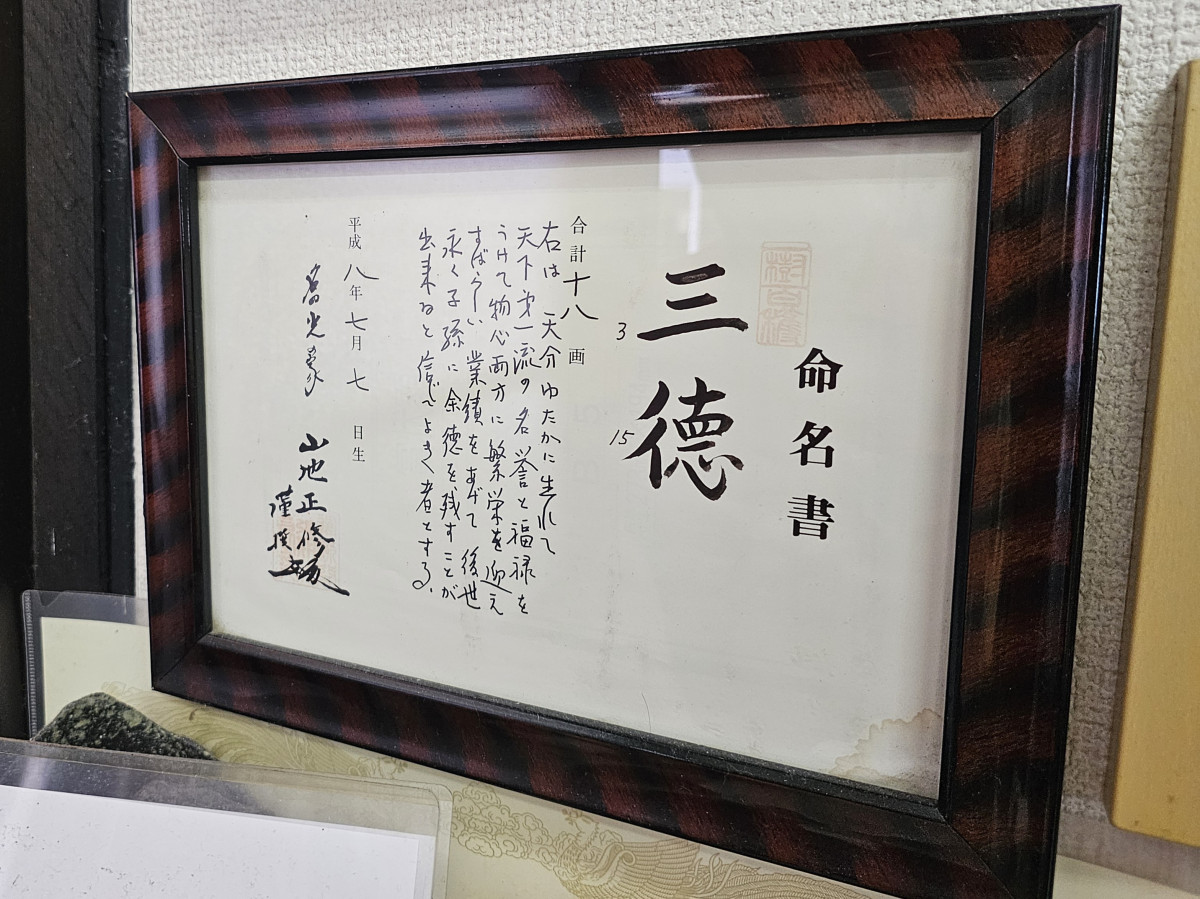 命名書
三德
3
15
合計十八画
右は天分ゆたかに生れて
天下第一流の名誉と福禄を
うけて物心両方に繁栄を迎え
すばらしい業績をあげて後世
永く子孫に余徳を残すことが
出来ると信じてよき者とする。
平成八年七月七日生
山地正修
謹